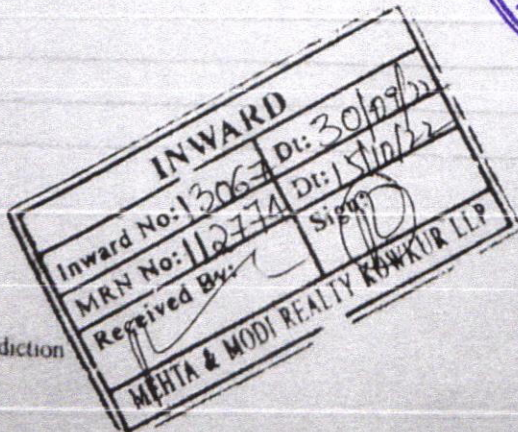 INWARD
Inward No: 13067 Dt: 30/09/22
MRN No: 112774 Dt: 15/10/22
Received By: Sign:
MEHTA & MODI REALTY KOWKUR LLP
diction